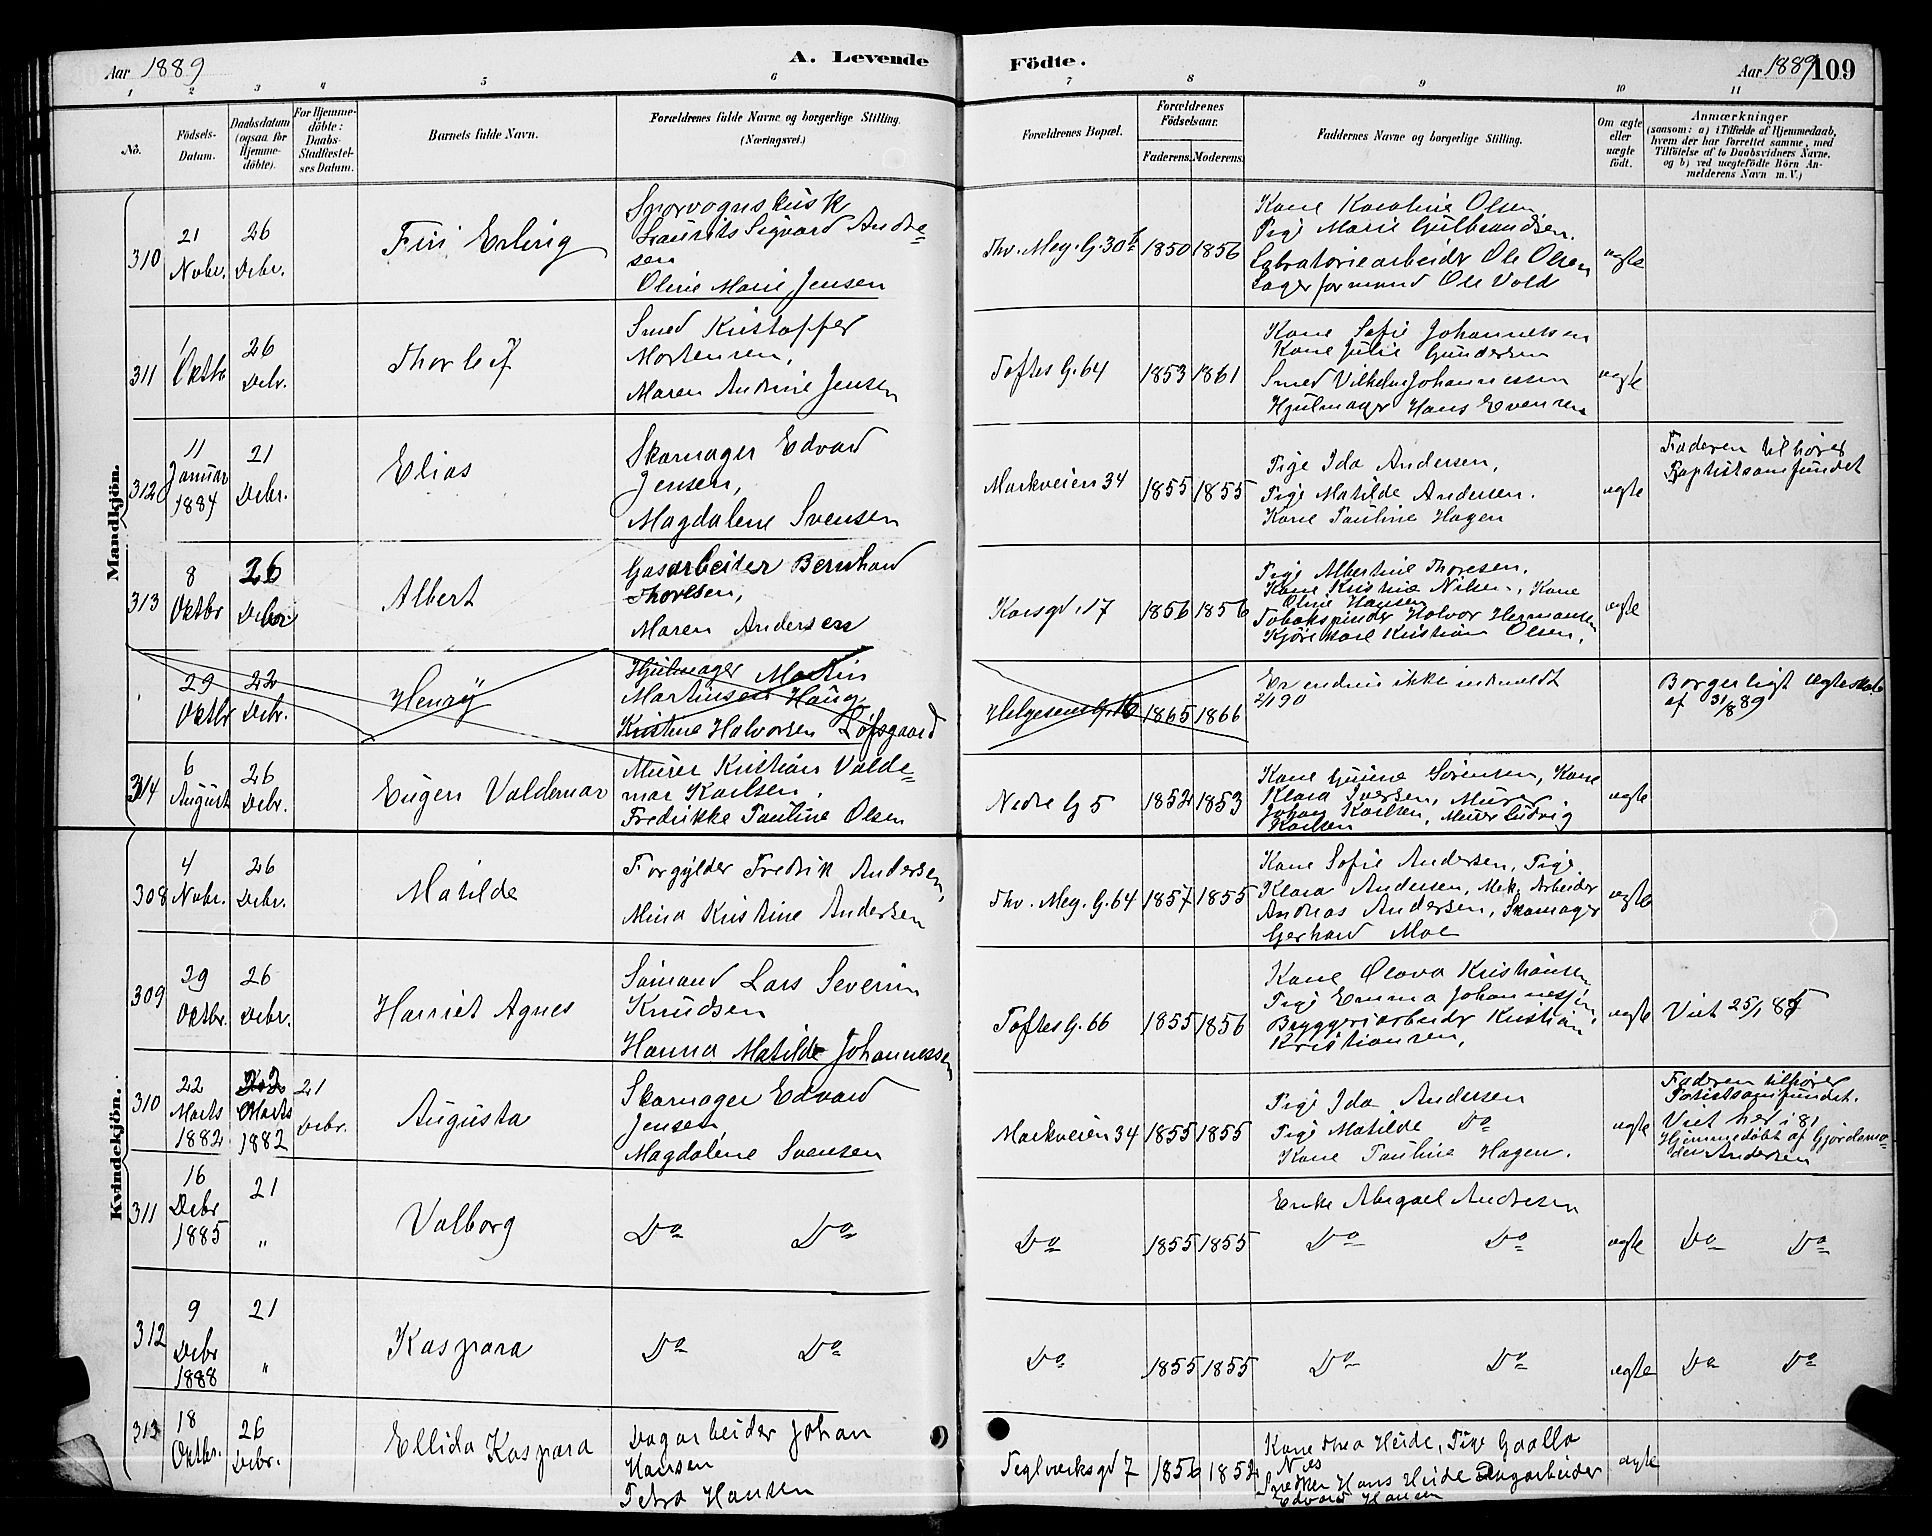 Aar 1889
A. Levende
Födte.
Aar 1889
109
1 2 3 4 5 6 7 8 9 10 11
No.
Födsels-
Datum.
Daabsdatum
(ogsaa for
Hjemme-
döbte).
For Hjemme-
döbte:
Daabs-
Stadfæstel-
ses Datum.
Barnets fulde Navn.
Forældrenes fulde Navne og borgerlige Stilling.
(Næringsvei.)
Forældrenes Bopæl.
Forældrenes
Födselsaar.
Faderens.
Moderens.
Faddernes Navne og borgerlige Stilling.
Om ægte
eller
uægte
födt.
Anmærkninger
(saasom: a) i Tilfælde af Hjemmedaab,
hvem der har forrettet samme, med
Tilföielse af to Daabsvidners Navne,
og b) ved uægtefödte Börn An-
melderens Navn m. V.)
Mandkjön.
310
21
Novbr.
26
Debr.
Finn Erling
Sporvognskusk
Laurits Sigvard Andre=
sen
Oline Marie Jensen
Thv. Mey. G. 30b
1850
1856
Kone Karoline Olsen
Pige Marie Gulbrandsen.
Labratoriearbeider Ole Olsen
Lagerformand Ole Vold
ægte
311
1
Oktbr
26
Debr.
Thorleif
Smed Kristoffer
Mortensen,
Maren Andrine Jensen
Toftes G. 64
1853
1861
Kone Sofie Johannessen
Kone Julie Gundersen
Smed Vilhelm Johannessen
Hjulmager Hans Evensen
ægte
312
11
Januar
1884
21
Debr.
Elias
Skomager Edvard
Jensen,
Magdalene Svensen
Markveien 34
1855
1855
Pige Ida Andersen,
Pige Matilde Andersen.
Kone Pauline Hagen
ægte
Faderen tilhører
Baptistsamfundet
313
8
Oktbr
26
Debr.
Albert
Gasarbeider Bernhard
Thoresen,
Maren Andersen
Korsgd. 17
1856
1856
Pige Albertine Thoresen,
Kone Kristine Nilsen, Kone
Oline Hansen
Tobakspinder Halvor Hermansen
Kjørekarl Kristian Olsen.
ægte
29
Oktbr
22
Debr.
Henry
Hjulmager Martin
Martinsen Haug
Kristine Halvorsen Løfsgaard
Helgesens G. 16
1865
1866
Er endnu ikke indmeldt
2/1 90
Borgerligt Ægteskab
af 31/8 89
314
6
August
26
Debr.
Eugen Valdemar
Murer Kristian Valde=
mar Karlsen,
Fredrikke Pauline Olsen
Nedre G 5
1852
1853
Kone Gunine Sørensen, Kone
Klara Iversen, Murer
Johan Karlsen, Murer Ludvig
Karlsen
ægte
Kvindekjön.
308
4
Novbr.
26
Debr.
Matilde
Forgylder Fredrik Andersen,
Mina Kristine Andersen
Thv. Mey. G. 64
1857
1855
Kone Sofie Andersen, Pige
Klara Andersen, Mek. Arbeider
Andreas Andersen, Skomager
Gerhard Moe
ægte
309
29
Oktbr.
26
Debr.
Harriet Agnes
Sømand Lars Severin
Knudsen
Hanna Matilde Johannessen
Toftes G. 66
1855
1856
Kone Olava Kristiansen
Pige Emma Johannessen,
Bryggeriarbeider Kristian
Kristiansen,
ægte
Viet 25/1 85
310
22
Marts
1882
22
Marts
1882
21
Debr.
Augusta
Skomager Edvard
Jensen
Magdalene Svensen
Markveien 34
1855
1855
Pige Ida Andersen
Pige Matilde Do
Kone Pauline Hagen.
ægte
Faderen tilhører
Viet her i 81
Hjemmedøbt af Gjordemo=
der Andersen
311
16
Debr
1885
21
"
Valborg
Do Do
Do
1855
1855
Enke Abigael Andresen
Do Do
ægte
Do Do
312
9
Debr
1888
21
"
Kaspara
Do Do
Do
1855
1855
Do Do
ægte
Do Do
313
18
Oktbr.
26
Debr.
Ellida Kaspara
Dagarbeider Johan
Hansen
Petra Hansen
Teglverksgd 7
1856
1852
Kone Thea Heide, Pige
Snedker Hans Heide Dagarbeider
Edvard Hansen
ægte